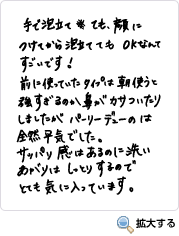 手で泡立て※ても、顔に
つけてから泡立てても OKなんて
すごいです！
前に使っていたタイプは朝使うと
強すぎるのか鼻がカサついたり
しましたがパーリーデューのは
全然平気でした。
サッパリ感はあるのに洗い
あがりはしっとりするので
とても気に入っています。
拡大する